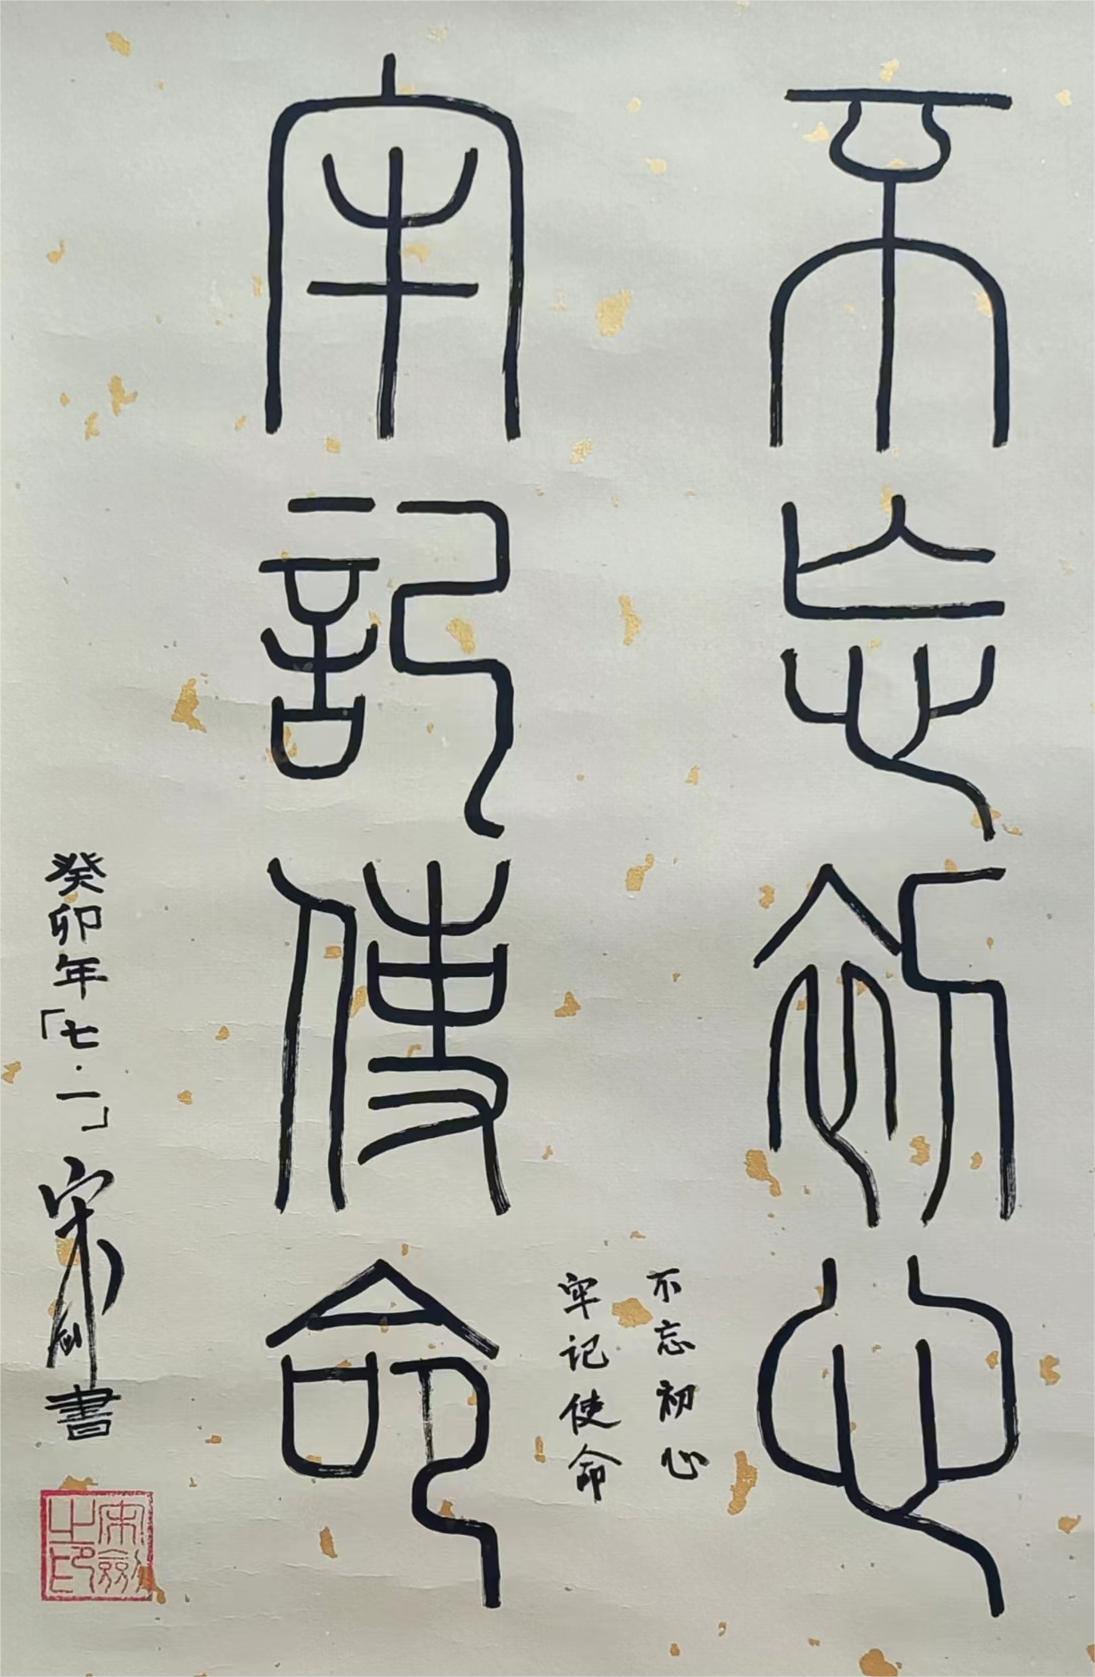 不忘初心
牢記使命
不忘初心
牢记使命
癸卯年「七·一」宋剑書
宋劍之印